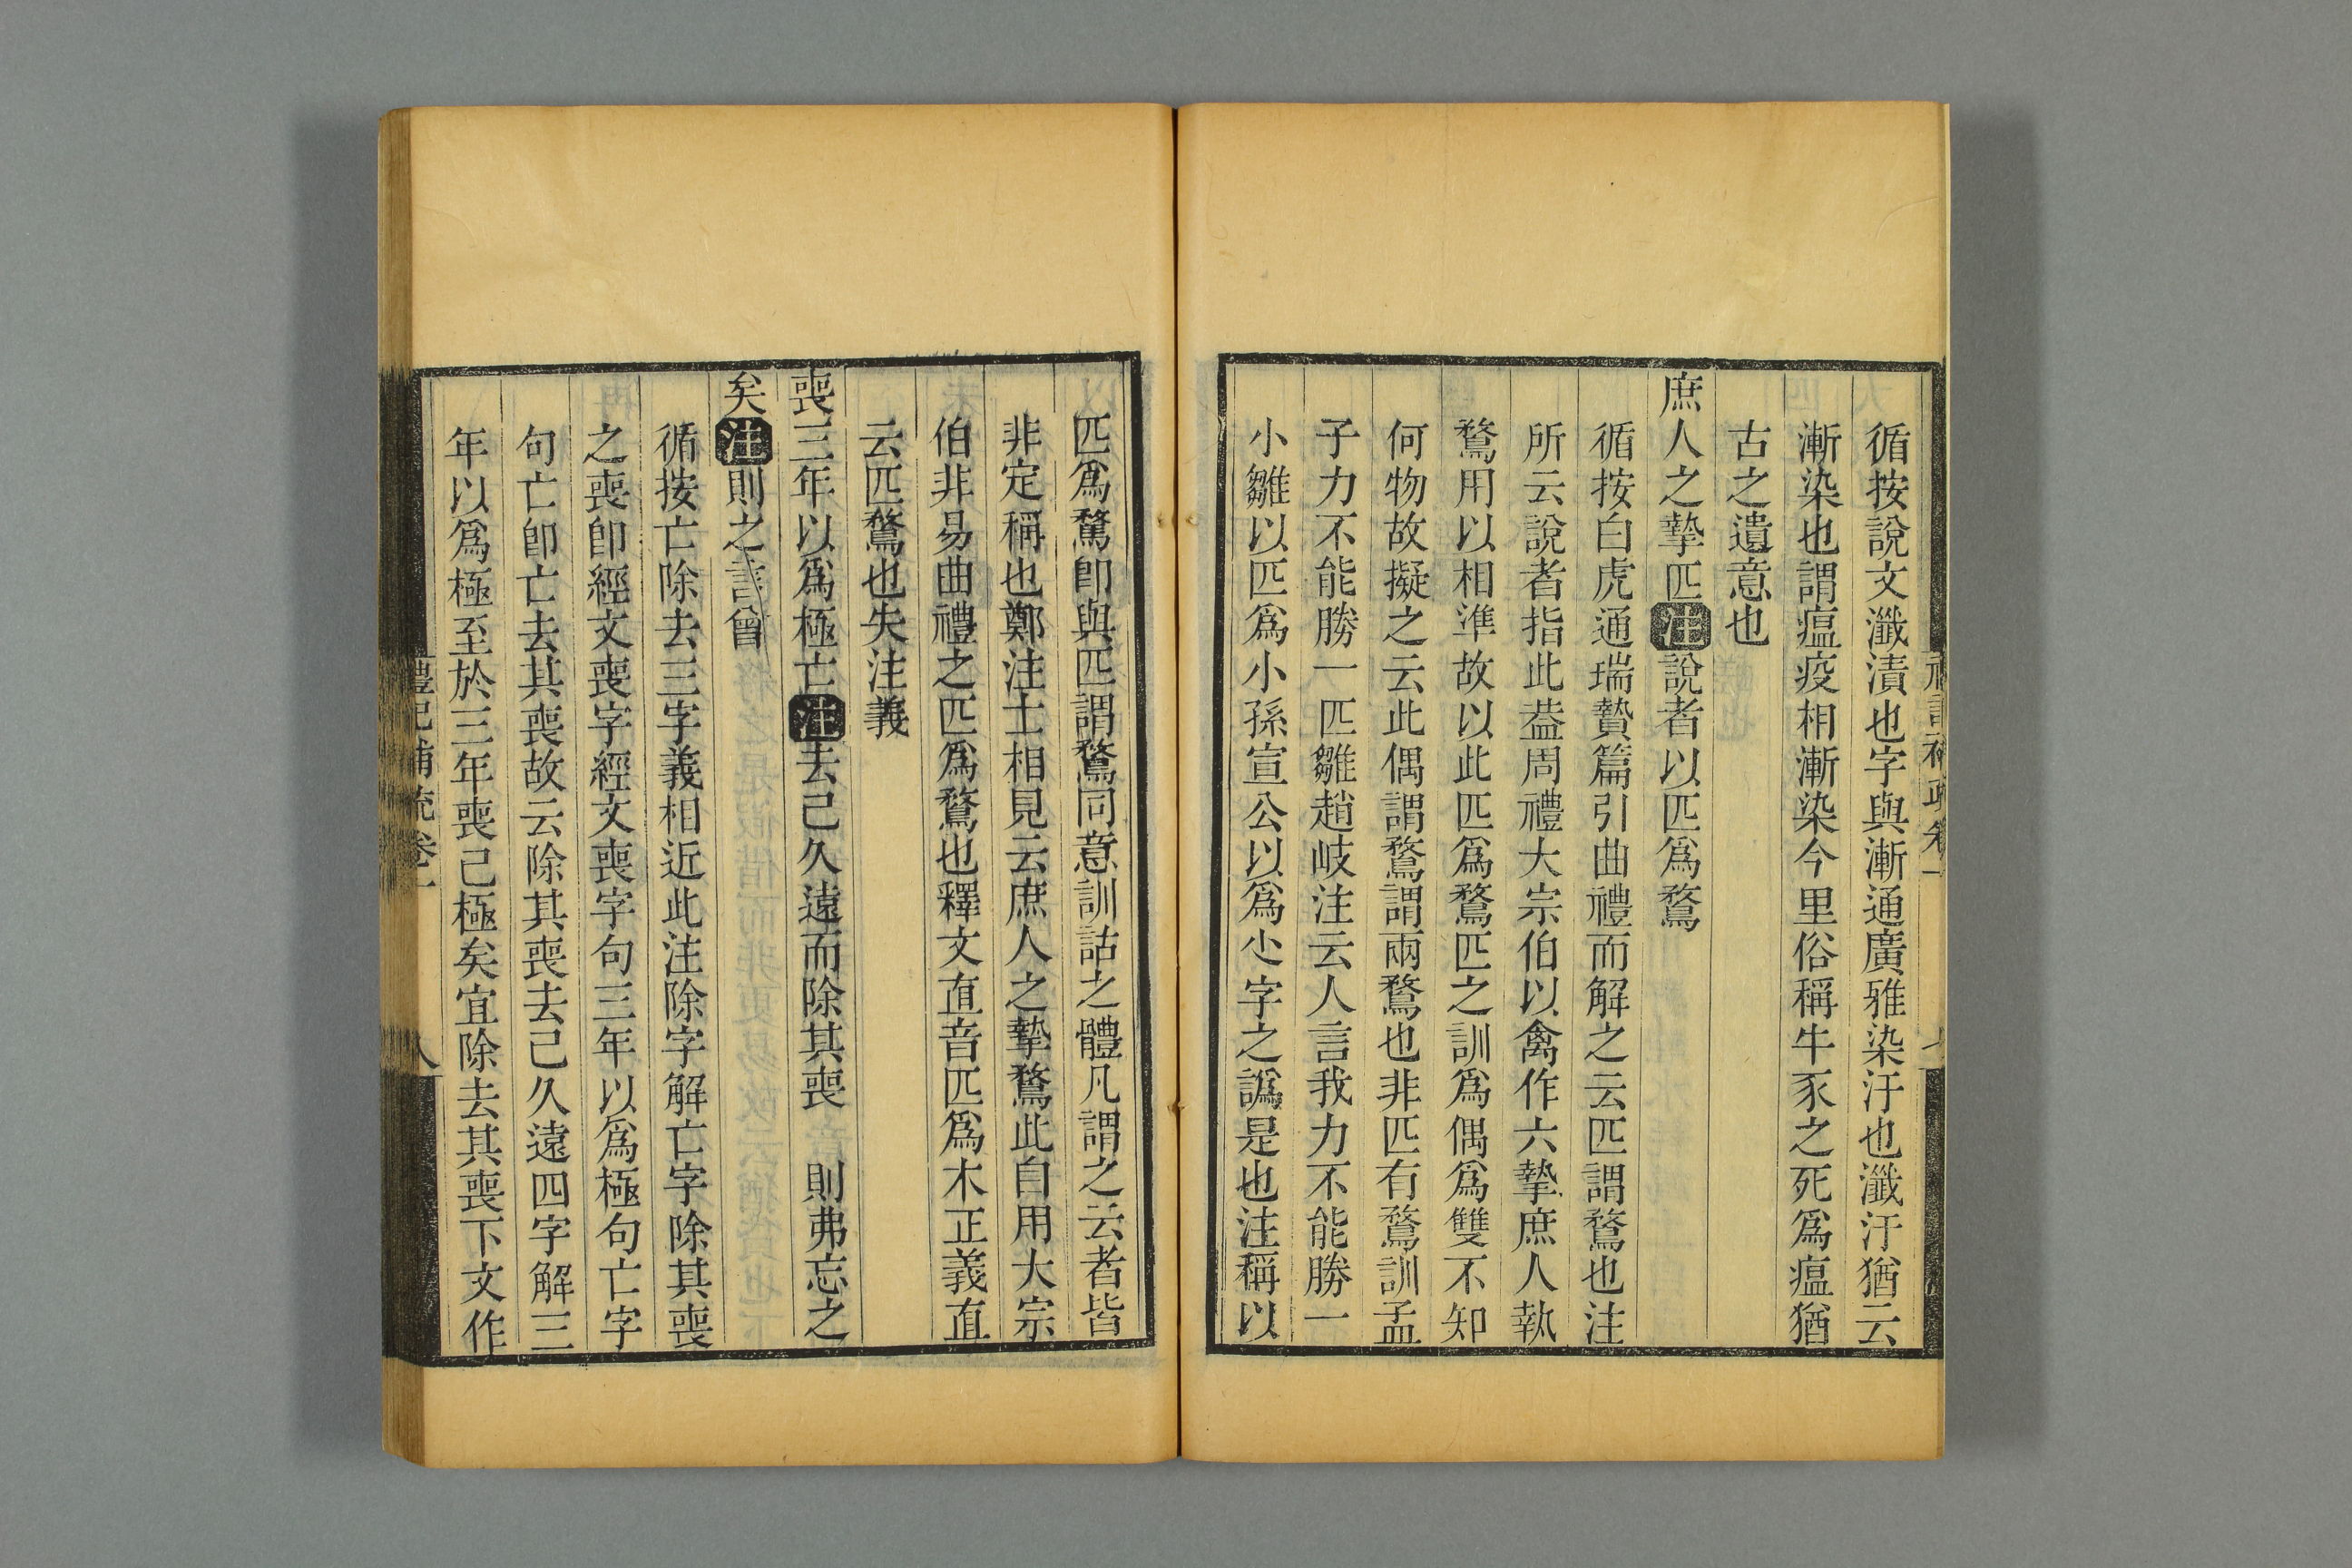 循按說文瀸漬也字與漸通廣雅染汙也瀸汙猶云
漸染也謂瘟疫相漸染今里俗稱牛豕之死爲瘟猶
古之遺意也
庶人之摯匹注說者以匹爲鶩
循按白虎通瑞贄篇引曲禮而解之云匹謂鶩也注
所云說者指此葢周禮大宗伯以禽作六摯庶人執
鶩用以相準故以此匹爲鶩匹之訓爲偶爲雙不知
何物故擬之云此偶謂鶩謂兩鶩也非匹有鶩訓孟
子力不能勝一匹雛趙岐注云人言我力不能勝一
小雛以匹爲小孫宣公以爲尐字之譌是也注稱以
匹爲鶩卽與匹謂鶩同意訓詁之體凡謂之云者皆
非定稱也鄭注士相見云庶人之摯鶩此自用大宗
伯非易曲禮之匹爲鶩也釋文直音匹爲木正義直
云匹鶩也失注義
喪三年以爲極亡注去己久遠而除其喪　則弗忘之
矣注則之言曾
循按亡除去三字義相近此注除字解亡字除其喪
之喪卽經文喪字經文喪字句三年以爲極句亡字
句亡卽亡去其喪故云除其喪去己久遠四字解三
年以爲極至於三年喪己極矣宜除去其喪下文作
禮記補疏卷一
八